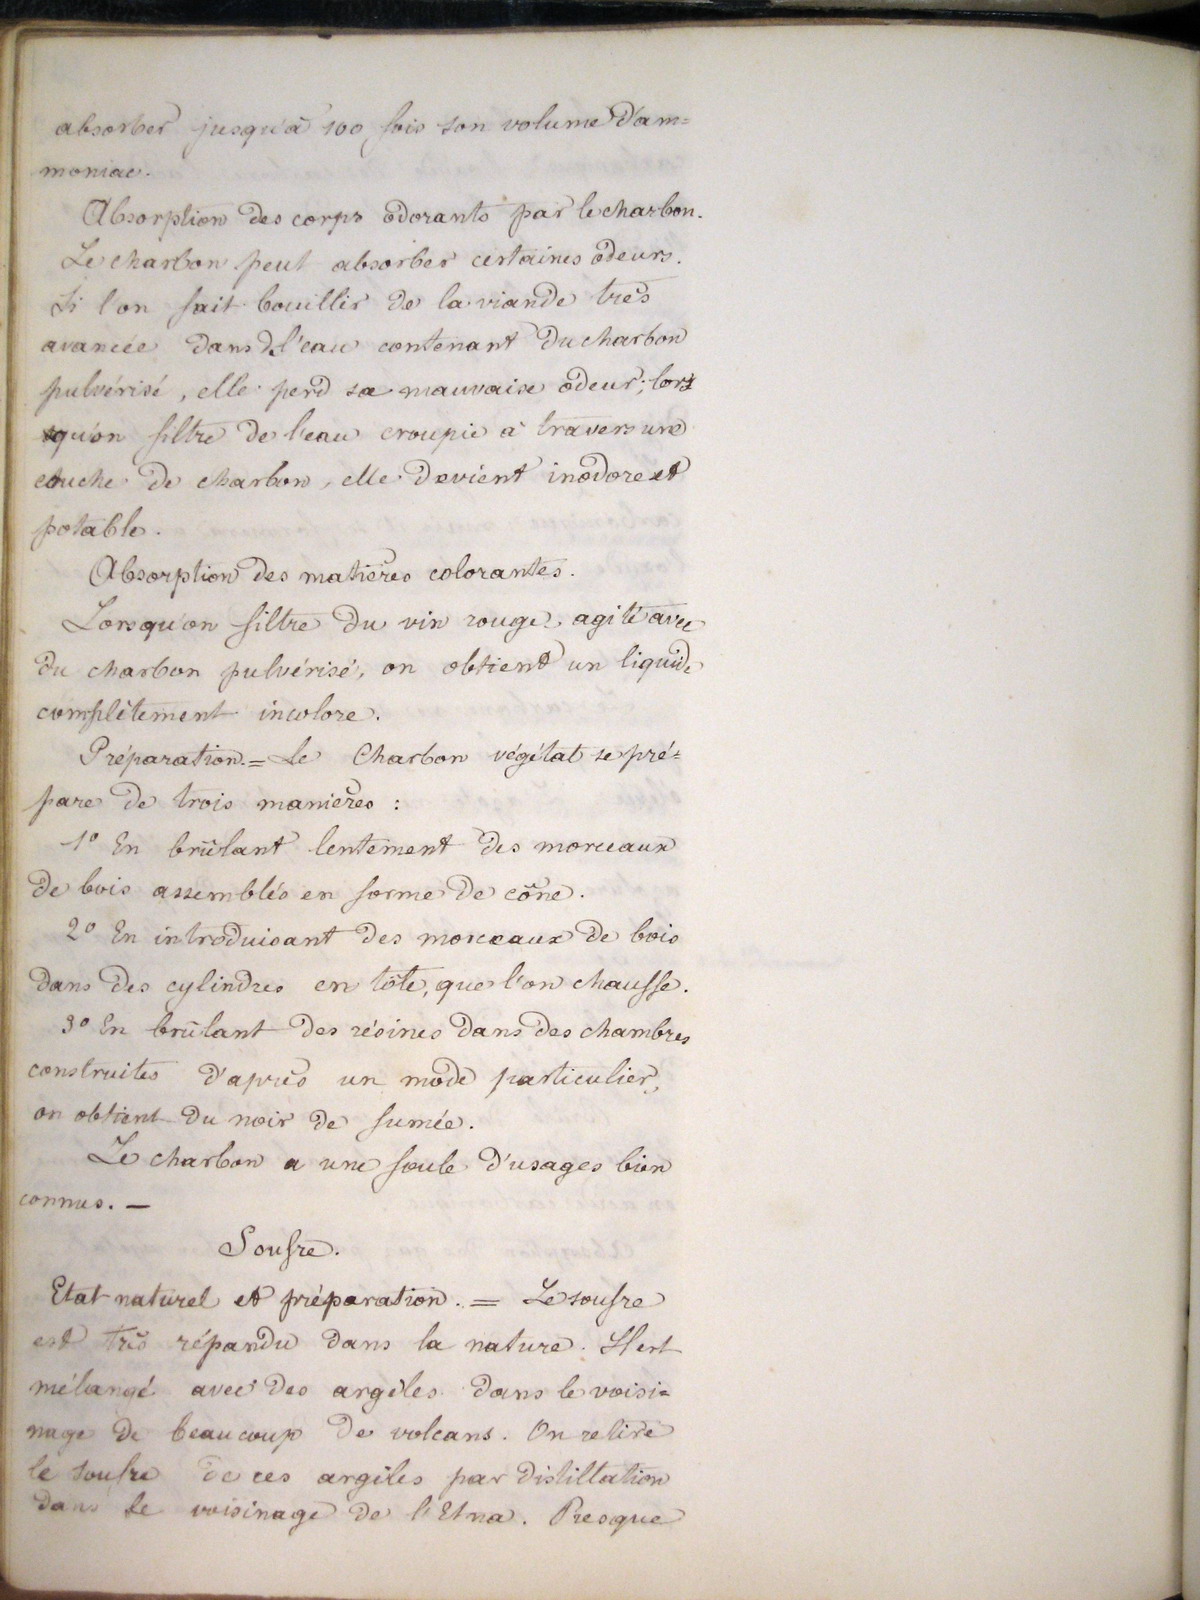 absorber jusqu'à 100 fois son volume d'am=
moniac.
Absorption des corps odorants par le charbon.
Le charbon peut absorber certaines odeurs.
Si l'on fait bouillir de la viande très
avancée dans de l'eau contenant du charbon
pulvérisé, elle perd sa mauvaise odeur; lors
qu'on filtre de l'eau croupie à travers une
couche de charbon, elle devient inodore et
potable.
Absorption des matières colorantes.
Lorsqu'on filtre du vin rouge, agité avec
du charbon pulvérisé, on obtient un liquide
complètement incolore.
Préparation. = Le Charbon végétal se pré=
pare de trois manières :
1º En brûlant lentement des morceaux
de bois assemblés en forme de cône.
2º En introduisant des morceaux de bois
dans des cylindres en tôle, que l'on chauffe.
3º En brûlant des résines dans des chambres
construites d'après un mode particulier,
on obtient du noir de fumée.
Le charbon a une foule d'usages bien
connus. —
Soufre.
Etat naturel et préparation. = Le soufre
est très répandu dans la nature. Il est
mélangé avec des argiles dans le voisi=
nage de beaucoup de volcans. On retire
le soufre de ces argiles par distillation
dans le voisinage de l'Etna. Presque